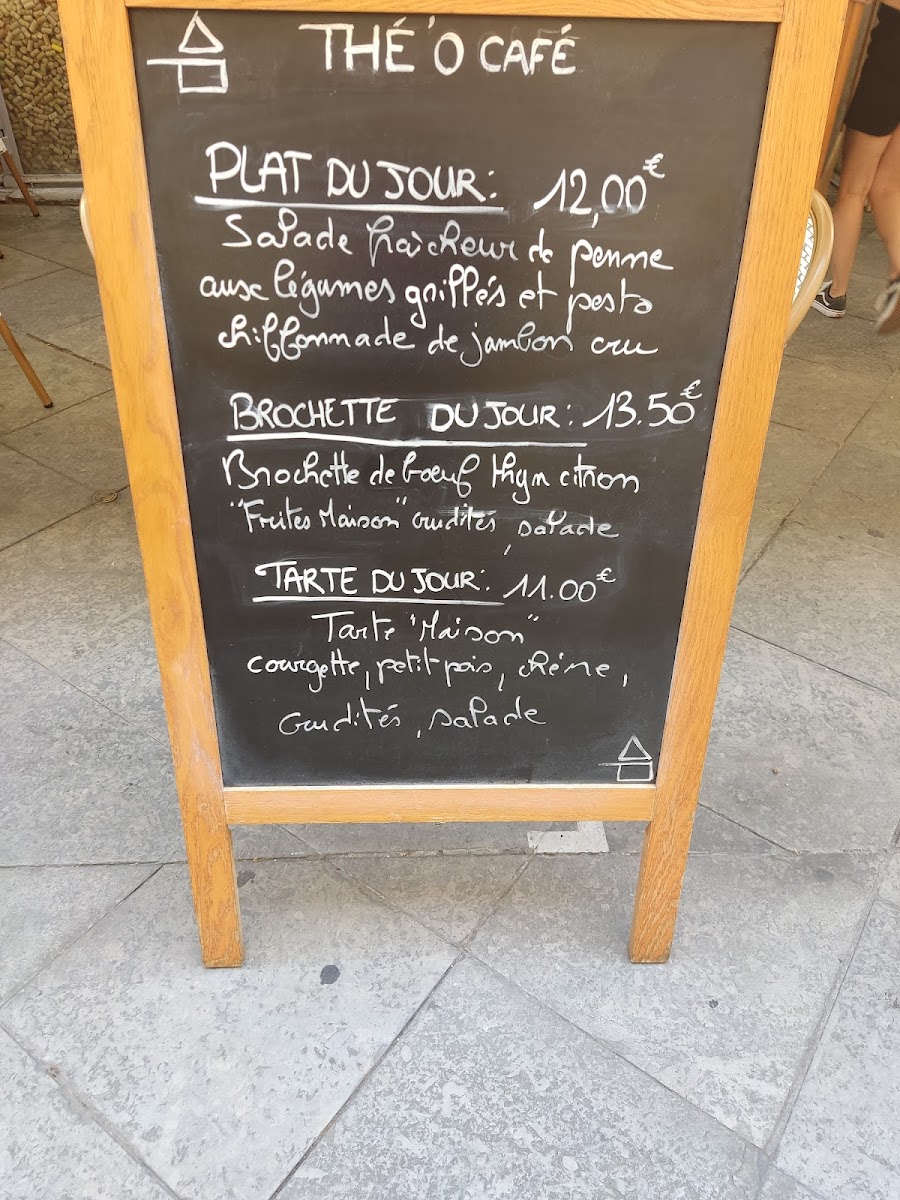 THÉ'O CAFÉ
PLAT DU JOUR: 12,00€
Salade fraîcheur de penne
aux légumes grillés et pesto
chiffonnade de jambon cru
BROCHETTE DU JOUR: 13.50€
Brochette de bœuf thym citron
"Frites Maison" crudités, salade
TARTE DU JOUR: 11.00€
Tarte "Maison"
courgette, petit pois, chèvre,
crudités, salade